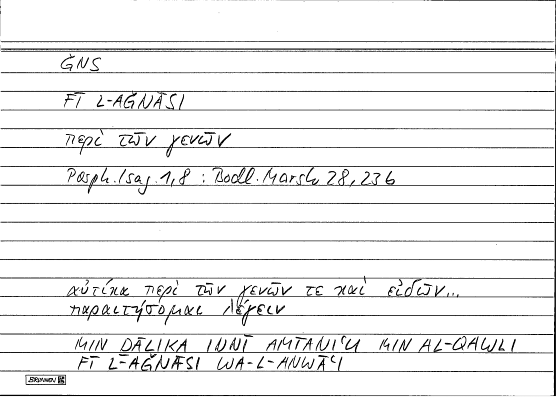 ǦNS
FĪ L-AǦNĀSI
περὶ τῶν γενῶν
Porph. Isag. 1,8 : Bodl. Marsh 28, 236
αὐτίκα περὶ τῶν γενῶν τε καὶ εἰδῶν...
παραιτήσομαι λέγειν
MIN ḎĀLIKA INNĪ AMTANIʿU MIN AL-QAWLI
FĪ L-AǦNĀSI WA-L-ANWĀʿI
BRUNNEN